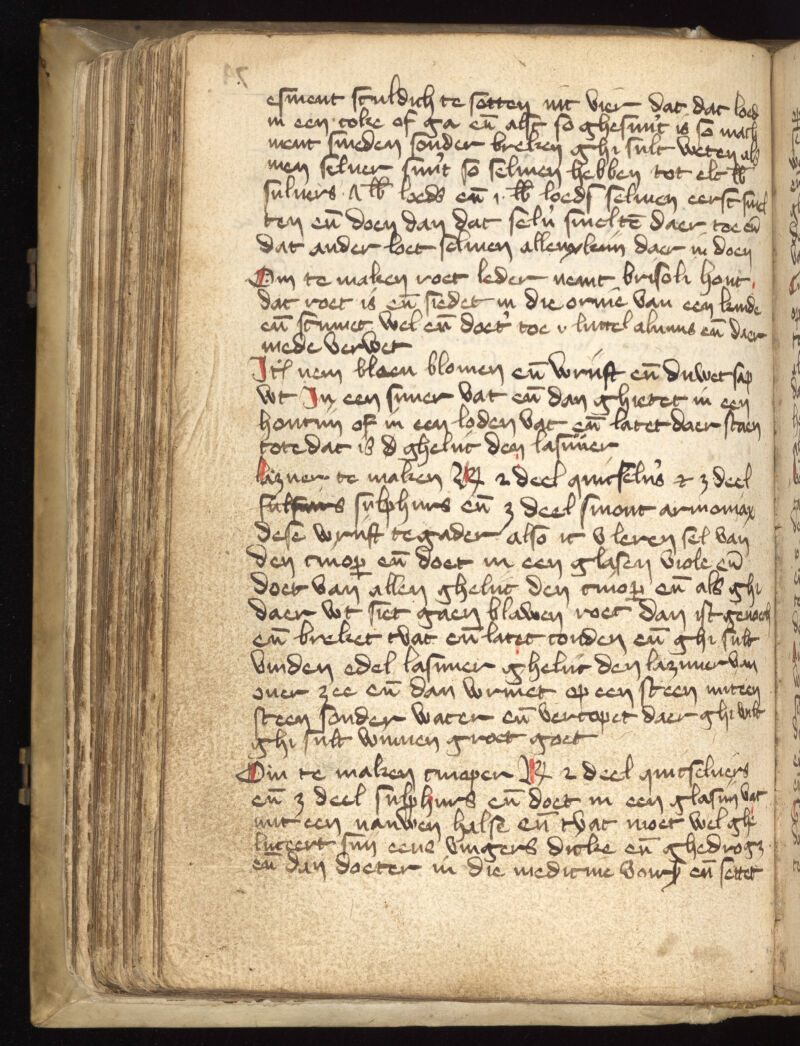 esment sculdich te setten int vier dat dat loed
in een coke of ga en̄ alst so ghesmi't is so mach
ment smeden sonder breken ghi sult weten als
men seluer smi't so selmen hebben tot elc lb
suluers 1 lb loeds en̄ 1 lb loeds selmen eerst smel
ten en̄ doen dan dat selu' smeltē daer toe en̄
dat ander loet selmen allenxkuin daer in doen
Om te maken roet leder nemt brisoli hout
dat roet is en̄ siedet in die orine van een kinde
en̄ scumet wel en̄ doet' toe 1 luttel aluuns en̄ daer
mede verwet
It' nem bloen blomen en̄ wrijft en̄ duwet sap
wt In een suuer vat en̄ dan ghietet in een
houtin of in een loden vat en̄ latet daer staen
tote dat is d ghelijc den lasuuer
lazuer te maken R 2 deel quicselu's 2 3 deel
sulphurs en̄ 3 deel smout armoniax
dese wrijft tegader also ic v leren sel van
den cinop' en̄ doet in een glasen viole en̄
doet van allen ghelijc den cinop' en̄ als ghi
daer wt siet gaen blawen roec dan ist genoech
en̄ breket tvat en̄ latet couden en̄ ghi sult
vinden edel lasuuer ghelijc den lazuuer van
ouer zee en̄ dan wrijuet op een steen mit een
steen sonder water en̄ vercopet daer ghi wilt
ghi sult winnen groet goet
Om te maken cinoper R 2 deel quicseluers
en̄ 3 deel sulphurs en̄ doet in een glasijn vat
mit een nauwen halse en̄ tvat moet wel ghe
luteert sijn eens vingers dicke en̄ ghedrogt
en̄ dan doeter in die medicine vours' en̄ settet